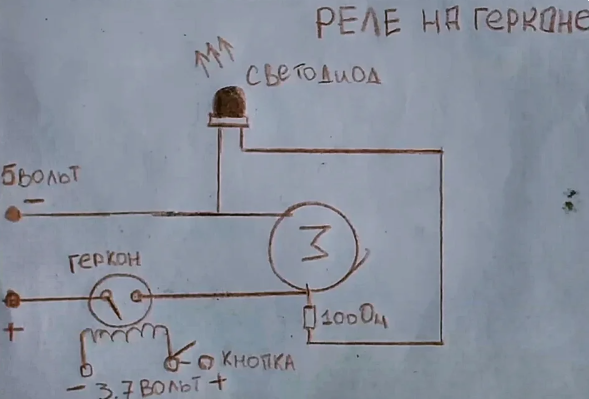 РЕЛЕ НА ГЕРКОНЕ
СВЕТОДИОД
5ВОЛЬТ
-
М
ГЕРКОН
+
100Ом
КНОПКА
- 3,7 ВОЛЬТ +